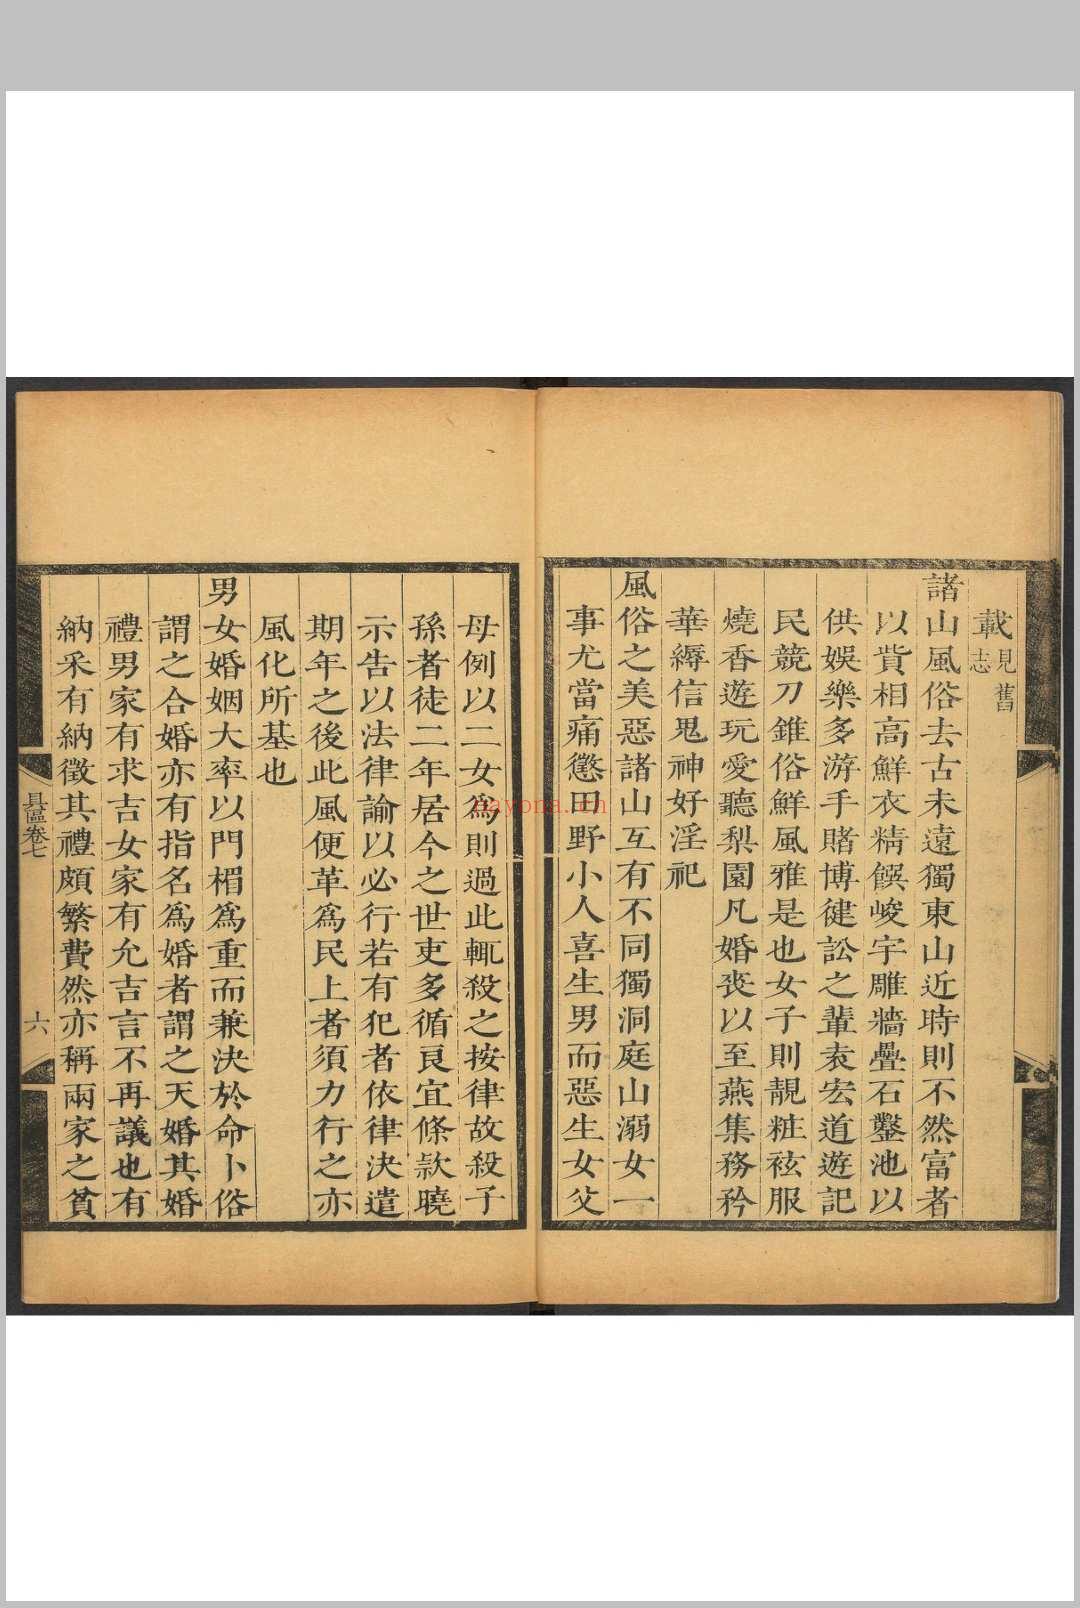 載見舊志
諸山風俗去古未遠獨東山近時則不然富者
以貲相高鮮衣精饌峻宇雕牆疊石鑿池以
供娛樂多游手賭博健訟之輩袁宏道遊記
民競刀錐俗鮮風雅是也女子則靚粧袨服
燒香遊玩愛聽梨園凡婚喪以至燕集務矜
華縟信鬼神好淫祀
風俗之美惡諸山互有不同獨洞庭山溺女一
事尤當痛懲田野小人喜生男而惡生女父
母例以二女爲則過此輒殺之按律故殺子
孫者徒二年居今之世吏多循良宜條款曉
示告以法律諭以必行若有犯者依律決遣
期年之後此風便革爲民上者須力行之亦
風化所基也
男女婚姻大率以門楣爲重而兼決於命卜俗
謂之合婚亦有指名爲婚者謂之天婚其婚
禮男家有求吉女家有允吉言不再議也有
納采有納徵其禮頗繁費然亦稱兩家之貧
具區卷七
六
nayona.cn